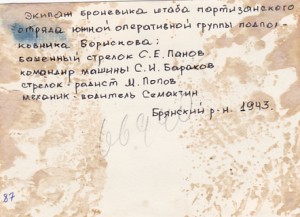 Экипаж броневика штаба партизанского
отряда южной оперативной группы подпол-
ковника Борискова:
башенный стрелок С.Е. Панов
командир машины С.И. Бараков
стрелок-радист М. Попов
механик-водитель Семактин
Брянский р-н. 1943.
87